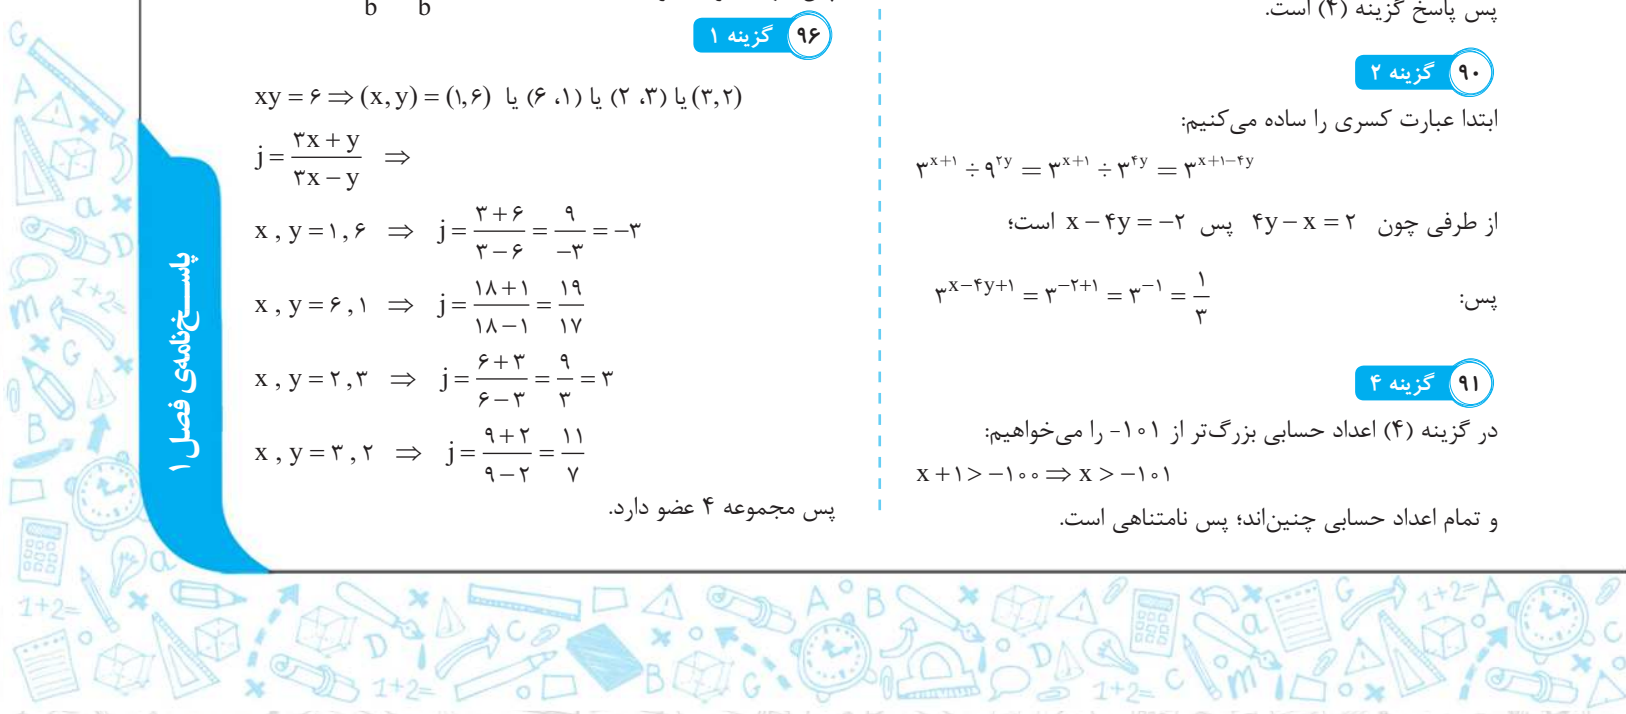 پس پاسخ گزینه (۴) است.
۹۰ گزینه ۲
ابتدا عبارت کسری را ساده می‌کنیم:
۳^{x+۱} ÷ ۹^{۲y} = ۳^{x+۱} ÷ ۳^{۴y} = ۳^{x+۱−۴y}
از طرفی چون ۴y − x = ۲ پس x − ۴y = −۲ است؛
پس: ۳^{x−۴y+۱} = ۳^{−۲+۱} = ۳^{−۱} = ۱/۳
۹۱ گزینه ۴
در گزینه (۴) اعداد حسابی بزرگ‌تر از ۱۰۱- را می‌خواهیم:
x + ۱ > −۱۰۰ ⇒ x > −۱۰۱
و تمام اعداد حسابی چنین‌اند؛ پس نامتناهی است.
b b
۹۶ گزینه ۱
xy = ۶ ⇒ (x, y) = (۱,۶) یا (۶ ،۱) یا (۲ ،۳) یا (۳,۲)
j = (۳x + y)/(۳x − y) ⇒
x , y = ۱ , ۶ ⇒ j = (۳ + ۶)/(۳ − ۶) = ۹/−۳ = −۳
x , y = ۶ , ۱ ⇒ j = (۱۸ + ۱)/(۱۸ − ۱) = ۱۹/۱۷
x , y = ۲ , ۳ ⇒ j = (۶ + ۳)/(۶ − ۳) = ۹/۳ = ۳
x , y = ۳ , ۲ ⇒ j = (۹ + ۲)/(۹ − ۲) = ۱۱/۷
پس مجموعه ۴ عضو دارد.
پاسخ‌نامه‌ی فصل ۱